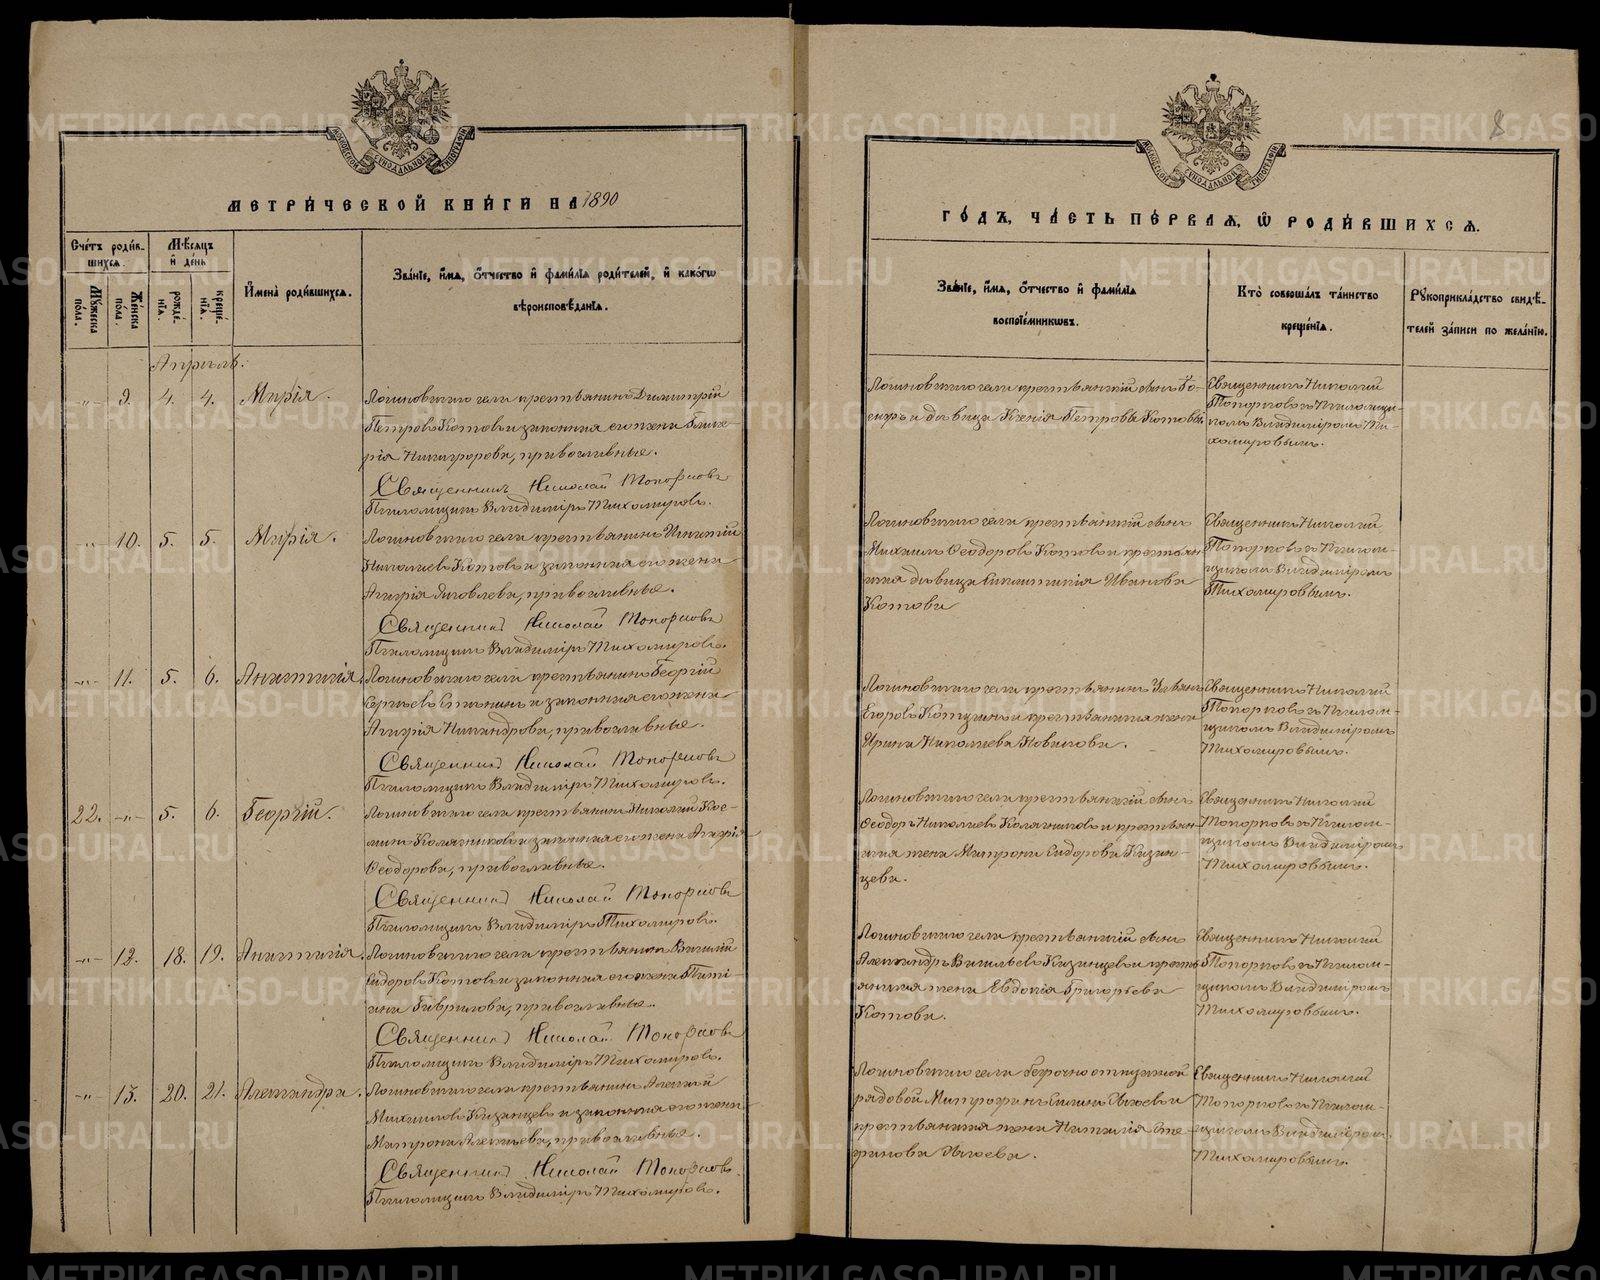 МЕТРИ́ЧЕСКОЙ КНИ́ГИ НА 1890
Счётъ роди́в-
шихся.
Мѣ́сяцъ
и де́нь
Мужеска по́ла.
Же́нска по́ла.
рожде́нія.
креще́нія.
Имена̀ роди́вшихся.
Зва́ніе, и́мя, о́тчество и фами́лія роди́телей, и како́гѡ
вѣроисповѣ́данія.
Апрѣль.
-"- 9. 4. 4. Марія.
Логиновскаго села крестьянинъ Димитрій
Петровъ Котовъ и законная его жена Глике-
рія Никифорова, православные.
Священникъ Николай Топорковъ
Псаломщикъ Владиміръ Тихомировъ.
-"- 10. 5. 5. Марія.
Логиновскаго села крестьянинъ Игнатій
Николаевъ Котовъ и законная его жена
Агафія Яковлева, православные.
Священникъ Николай Топорковъ
Псаломщикъ Владиміръ Тихомировъ.
-"- 11. 5. 6. Анастасія.
Логиновскаго села крестьянинъ Георгій
Сергѣевъ и законная его жена
Агафія Никандрова, православные.
Священникъ Николай Топорковъ
Псаломщикъ Владиміръ Тихомировъ.
22. -"- 5. 6. Георгій.
Логиновскаго села крестьянинъ Николай Кос-
минъ и законная его жена Агафія
Ѳеодорова, православные.
Священникъ Николай Топорковъ
Псаломщикъ Владиміръ Тихомировъ.
-"- 12. 18. 19. Анастасія.
Логиновскаго села крестьянинъ Василій
Сидоровъ Котовъ и законная его жена Тати-
ана Гаврилова, православные.
Священникъ Николай Топорковъ
Псаломщикъ Владиміръ Тихомировъ.
-"- 13. 20. 21. Александра.
Логиновскаго села крестьянинъ Алексѣй
Михаиловъ Казанцевъ и законная его жена
Матрона Алексѣева, православные.
Священникъ Николай Топорковъ
Псаломщикъ Владиміръ Тихомировъ.
8
ГО́ДЪ, ЧА́СТЬ ПЕ́РВАЯ, Ѡ РОДИ́ВШИХСЯ.
Зва́ніе, и́мя, о́тчество и фами́лія
воспріе́мниковъ.
Кто̀ соверша́лъ та́инство
креще́нія.
Рукоприкла́дство свидѣ́-
телей за́писи по жела́нію.
Логиновскаго села крестьянскій сынъ
и дѣвица Ксенія Петрова Котова.
Священникъ Николай
Топорковъ съ Псаломщи-
комъ Владиміромъ Ти-
хомировымъ.
Логиновскаго села крестьянскій сынъ
Михаилъ Ѳеодоровъ Котовъ и крестьян-
ская дѣвица Ивановна
Котова
Священникъ Николай
Топорковъ съ Псалом-
щикомъ Владиміромъ
Тихомировымъ.
Логиновскаго села крестьянинъ
Егоровъ и крестьянская жена
Ирина Николаева Новикова.
Священникъ Николай
Топорковъ съ Псалом-
щикомъ Владиміромъ
Тихомировымъ.
Логиновскаго села крестьянскій сынъ
Ѳеодоръ Николаевъ и крестьян-
ская жена Матрона Сидорова Казан-
цева.
Священникъ Николай
Топорковъ съ Псалом-
щикомъ Владиміромъ
Тихомировымъ.
Логиновскаго села крестьянскій сынъ
Александръ Васильевъ Казанцевъ и кресть-
янская жена Евдокія Григорьева
Котова.
Священникъ Николай
Топорковъ съ Псалом-
щикомъ Владиміромъ
Тихомировымъ.
Логиновскаго села безсрочно отпускной
рядовой Митрофанъ и
крестьянская жена Наталія
Священникъ Николай
Топорковъ съ Псалом-
щикомъ Владиміромъ
Тихомировымъ.
METRIKI.GASO-URAL.RU